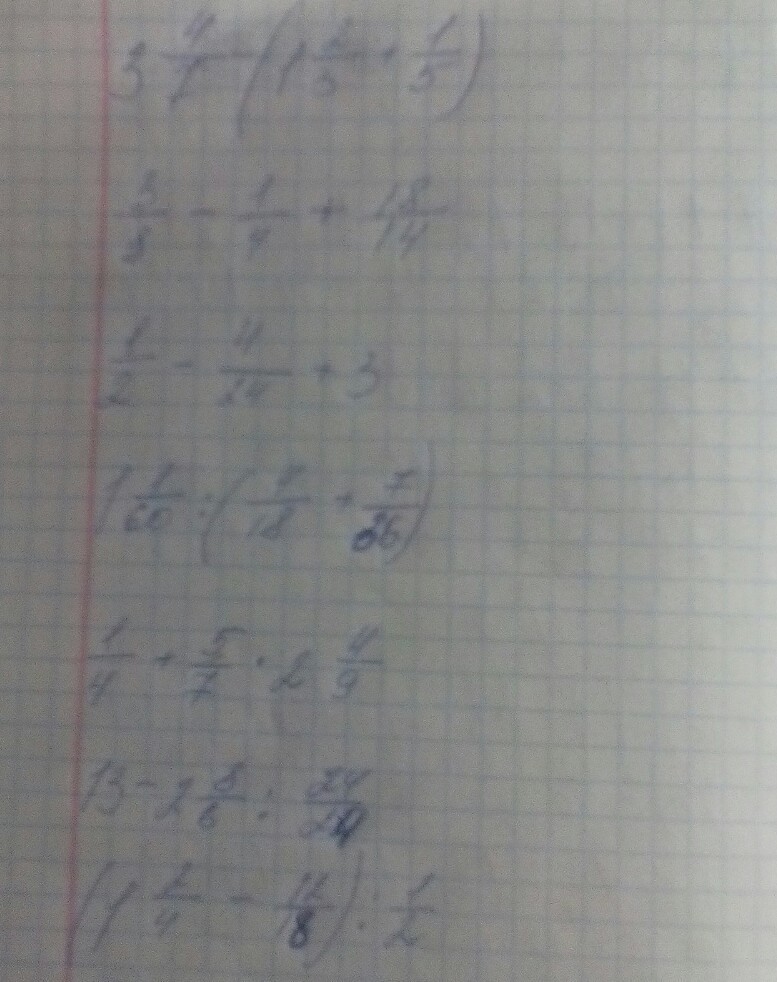 3 4/7 - (1 2/5 + 1/5)
3/8 - 1/4 + 18/14
1/2 - 4/24 + 3
1 1/60 : (7/18 + 7/36)
1/4 + 5/7 · 2 4/9
13 - 2 8/6 :
(1 2/4 - 12/18) : 1/2